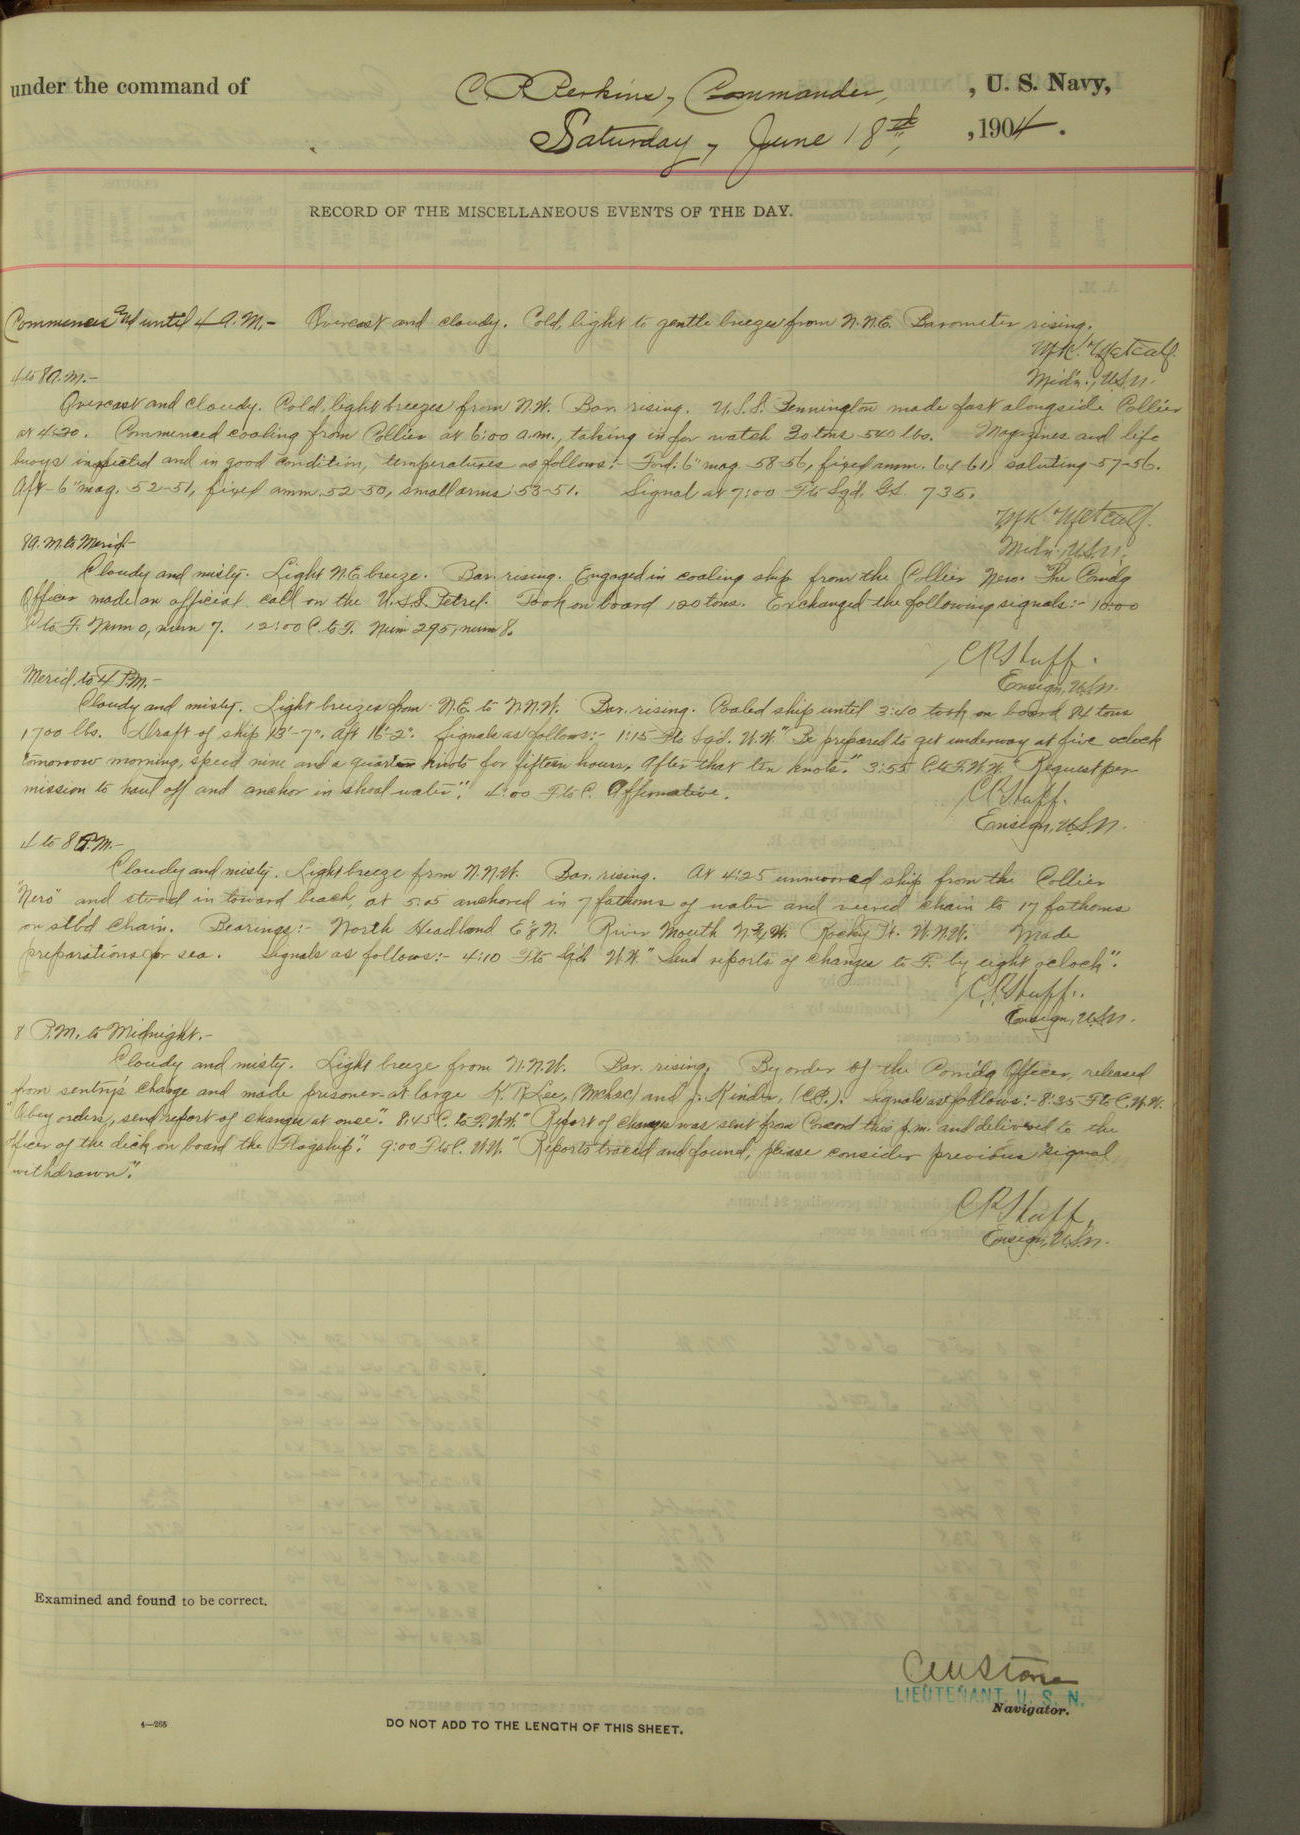 under the command of C P Perkins, Commander, , U. S. Navy,
Saturday, June 18th, , 1904.
RECORD OF THE MISCELLANEOUS EVENTS OF THE DAY.
Commences and until 4 A.M.- Overcast and cloudy. Cold, light to gentle breezes from N.N.E. Barometer rising.
Metcalf.
Mid'n., U.S.N.
4 to 8 A.M.-
Overcast and cloudy. Cold, light breezes from N.W. Bar. rising. U.S.S. Bennington made fast alongside Collier
at 4:20. Commenced coaling from Collier at 6:00 a.m., taking in for watch 30 tons 540 lbs. Magazines and life
buoys inspected and in good condition, temperatures as follows:- Ford. 6" mag. 58-56, fixed amm. 64-61, saluting 57-56.
Aft- 6" mag. 52-51, fixed amm. 52-50, small arms 53-51. Signal at 7:00 F to Sqd. G.S. 735.
Metcalf.
Mid'n. U.S.N.
8 A.M. to Merid.-
Cloudy and misty. Light N.E. breeze. Bar. rising. Engaged in coaling ship from the Collier Nero. The Comdg
Officer made an official call on the U.S.S. Petrel. Took on board 120 tons. Exchanged the following signals:- 10:00
C to F. Num 0, num 7. 12:00 C. to F. Num 295, num 8.
Ensign, U.S.N.
Merid. to 4 P.M.-
Cloudy and misty. Light breezes from N.E. to N.N.W. Bar. rising. Coaled ship until 3:40 took on board 84 tons
1700 lbs. Draft of ship 13'-7", aft 16'-2". Signals as follows:- 1:15 F to Sqd. W.W. "Be prepared to get underway at five oclock
tomorrow morning, speed nine and a quarter knots for fifteen hours, after that ten knots." 3:55 C. to F. W.W. "Request per
mission to haul off and anchor in shoal water". 4:00 F to C. Affirmative.
Ensign, U.S.N.
4 to 8 P.M.-
Cloudy and misty. Light breeze from N.N.W. Bar. rising. At 4:25 unmoored ship from the Collier
"Nero" and stood in toward beach, at 5:05 anchored in 7 fathoms of water and veered chain to 17 fathoms
on stbd chain. Bearings:- North Headland E⅛N. River Mouth N.¾W. Rocky Pt. W.N.W. Made
preparations for sea. Signals as follows:- 4:10 F to Sqd W.W. "Send reports of changes to F. by eight oclock".
Ensign, U.S.N.
8 P.M. to Midnight.-
Cloudy and misty. Light breeze from N.N.W. Bar. rising. By order of the Comdg Officer, released
from sentry's charge and made prisoner-at-large K. R. Lee, and J. Kinder, (C.P.). Signals as follows:- 8:35 F to C. W.W.
"Obey orders, send report of changes at once". 8:45 C. to F. W.W. "Report of changes was sent from Concord this p.m. and delivered to the
officer of the deck on board the Flagship". 9:00 F to C. W.W. "Reports traced and found, please consider previous signal
withdrawn".
Ensign, U.S.N.
Examined and found to be correct.
Stone
LIEUTENANT, U. S. N.
Navigator.
4—265
DO NOT ADD TO THE LENGTH OF THIS SHEET.